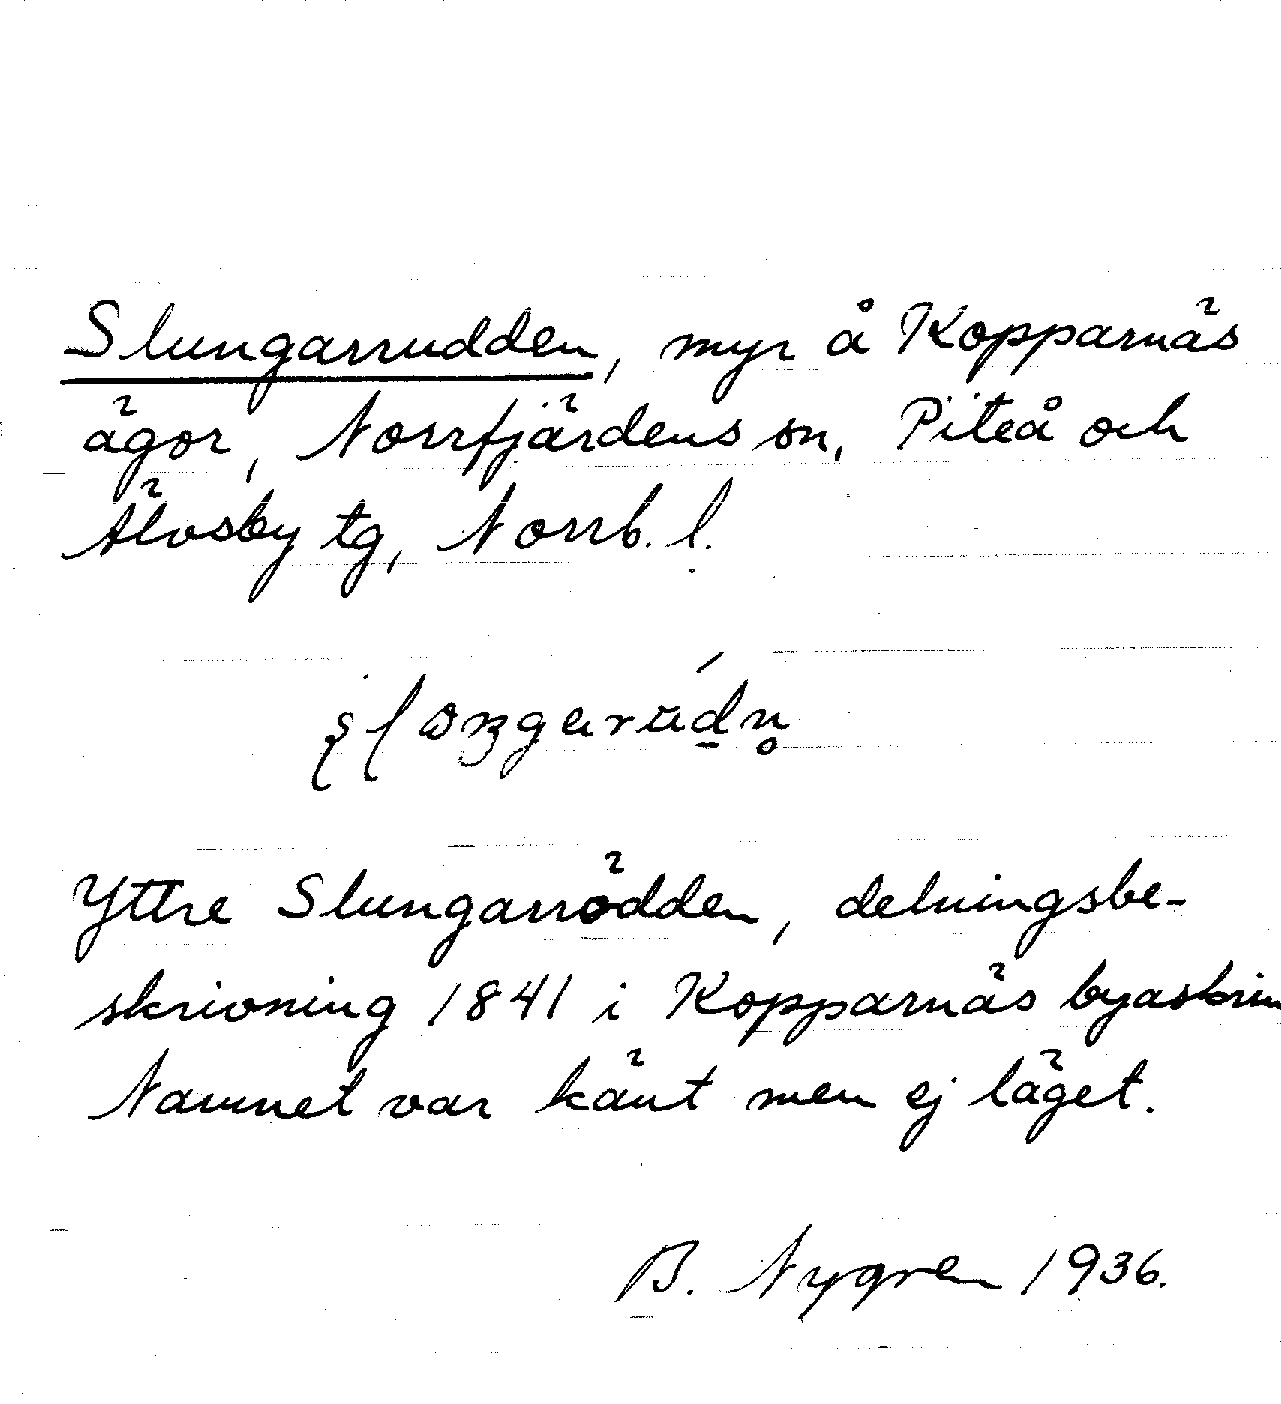 Slungarrudden, myr å Kopparnäs
ägor, Norrfjärdens sn, Piteå och
Älvsby tg, Norrb. l.
Yttre Slungarrödden, delningsbe-
skrivning 1841 i Kopparnäs byaskrin
Namnet var känt men ej läget.
B. Nygren 1936.